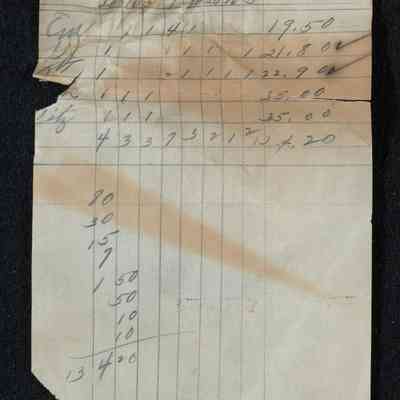 1 1 4 1 19.50
1 1 1 1 1 21.80
1 2 1 1 1 1 22.90
1 1 1 35.00
1 1 1 35.00
4 3 3 7 3 2 1 2 134.20
80
30
15
7
1 50
50
10
10
13 4 20